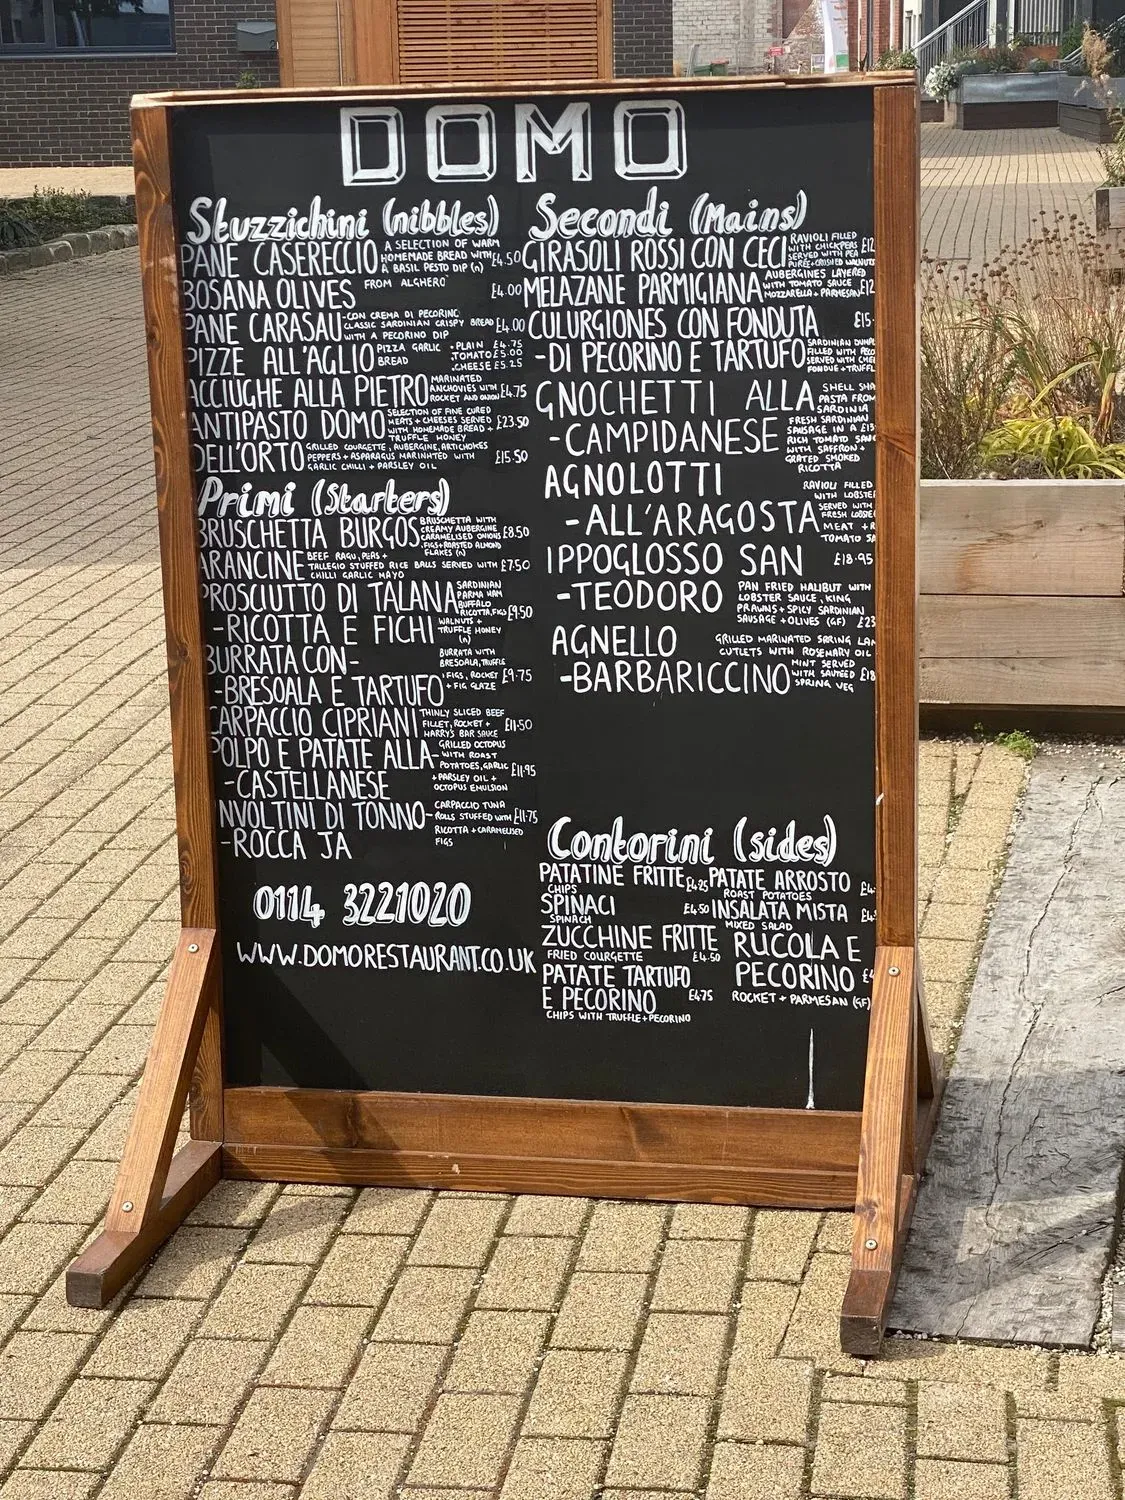 DOMO
Stuzzichini (nibbles)
PANE CASERECCIO A SELECTION OF WARM HOMEMADE BREAD WITH A BASIL PESTO DIP (n) £4.50
BOSANA OLIVES FROM ALGHERO £4.00
PANE CARASAU -CON CREMA DI PECORINO CLASSIC SARDINIAN CRISPY BREAD WITH A PECORINO DIP £4.00
PIZZE ALL'AGLIO PIZZA GARLIC BREAD .PLAIN £4.75 .TOMATO £5.00 .CHEESE £5.25
ACCIUGHE ALLA PIETRO MARINATED ANCHOVIES WITH ROCKET AND ONION £4.75
ANTIPASTO DOMO SELECTION OF FINE CURED MEATS + CHEESES SERVED WITH HOMEMADE BREAD + TRUFFLE HONEY £23.50
DELL'ORTO GRILLED COURGETTE, AUBERGINE, ARTICHOKES PEPPERS + ASPARAGUS MARINATED WITH GARLIC CHILLI + PARSLEY OIL £15.50
Primi (Starters)
BRUSCHETTA BURGOS BRUSCHETTA WITH CREAMY AUBERGINE CARAMELISED ONIONS .FIGS+ROASTED ALMOND FLAKES (n) £8.50
ARANCINE BEEF RAGU, PEAS + TALLEGIO STUFFED RICE BALLS SERVED WITH CHILLI GARLIC MAYO £7.50
PROSCIUTTO DI TALANA SARDINIAN PARMA HAM BUFFALO RICOTTA, FIGS £9.50
-RICOTTA E FICHI WALNUTS + TRUFFLE HONEY (n)
BURRATA CON- BURRATA WITH BRESOALA, TRUFFLE
-BRESOALA E TARTUFO FIGS, ROCKET + FIG GLAZE £9.75
CARPACCIO CIPRIANI THINLY SLICED BEEF FILLET, ROCKET + HARRY'S BAR SAUCE £11.50
POLPO E PATATE ALLA- GRILLED OCTOPUS WITH ROAST POTATOES, GARLIC £11.95
-CASTELLANESE + PARSLEY OIL + OCTOPUS EMULSION
INVOLTINI DI TONNO- CARPACCIO TUNA ROLLS STUFFED WITH £11.75
-ROCCA JA RICOTTA + CARAMELISED FIGS
0114 3221020
WWW.DOMORESTAURANT.CO.UK
Secondi (Mains)
GIRASOLI ROSSI CON CECI RAVIOLI FILLED WITH CHICKPEAS SERVED WITH PEA PUREE+CRUSHED WALNUTS £12
MELAZANE PARMIGIANA AUBERGINES LAYERED WITH TOMATO SAUCE MOZZARELLA + PARMESAN £12
CULURGIONES CON FONDUTA £15
-DI PECORINO E TARTUFO SARDINIAN FILLED WITH SERVED WITH FONDUE
GNOCHETTI ALLA SHELL PASTA FROM SARDINIA
-CAMPIDANESE FRESH SARDINIAN SAUSAGE IN A RICH TOMATO WITH SAFFRON + GRATED SMOKED RICOTTA
AGNOLOTTI RAVIOLI FILLED WITH
-ALL'ARAGOSTA SERVED WITH FRESH MEAT + TOMATO
IPPOGLOSSO SAN £18.95
-TEODORO PAN FRIED HALIBUT WITH LOBSTER SAUCE, KING PRAWNS + SPICY SARDINIAN SAUSAGE + OLIVES (GF) £23
AGNELLO GRILLED MARINATED CUTLETS WITH ROSEMARY OIL
-BARBARICCINO MINT SERVED WITH SAUTEED SPRING VEG £18
Contorini (sides)
PATATINE FRITTE £4.25
CHIPS
SPINACI £4.50
SPINACH
ZUCCHINE FRITTE
FRIED COURGETTE £4.50
PATATE TARTUFO
E PECORINO £4.75
CHIPS WITH TRUFFLE+PECORINO
PATATE ARROSTO
ROAST POTATOES
INSALATA MISTA
MIXED SALAD
RUCOLA E
PECORINO
ROCKET + PARMESAN (GF)